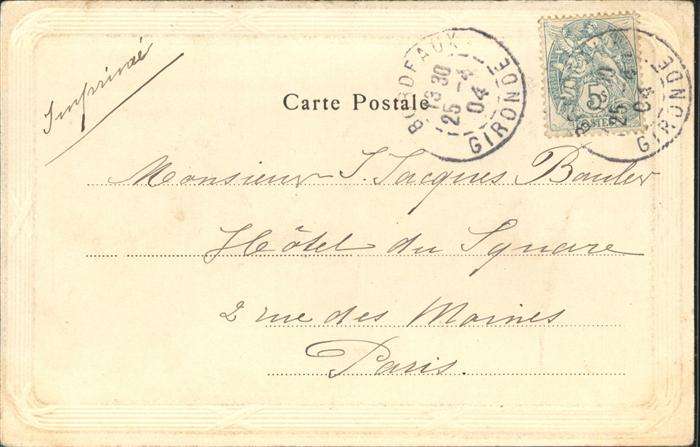 Imprimé
Carte Postale
BORDEAUX
13 30
25 - 4
04
GIRONDE
5
25
04
GIRONDE
Monsieur J. Jacques Bouler
Hôtel du Square
2 rue des Moines
Paris.